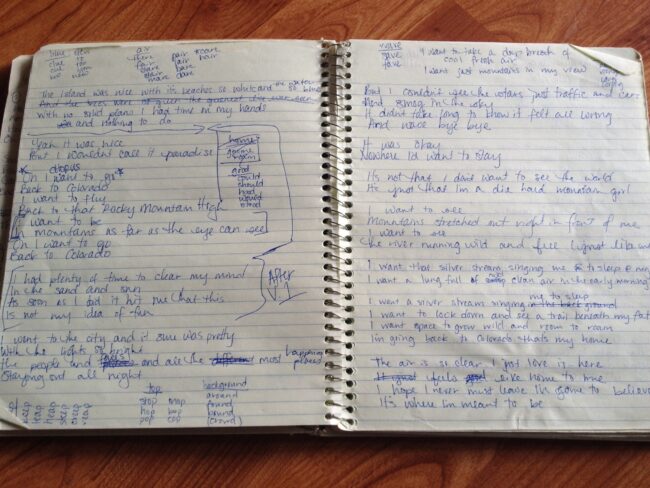 blue dew
clue to
cue you
we new
air
there pair scare
fair air hair
stare bare
share dare
The island was nice with its beaches so white and the water so blue
And the trees were of green the greenest I've ever seen
With no solid plans I had time in my hands
and nothing to do
Yeah it was nice
But I wouldn't call it paradise
chorus
Oh I want to go
Back to Colorado
I want to fly
Back to that Rocky Mountain High
I want to be
Mountains as far as the eye can see
Oh I want to go
Back to Colorado
home
roam
good
could
should
hood
would
stood
I had plenty of time to clear my mind
In the sand and sun
As soon as I did it hit me that this
Is not my idea of fun
After
I went to the city and it sure was pretty
With the lights so bright
the people and and all the different most happening places
Staying out all night
top
stop mop
hop bop
pop cop
background
around
found
bound
(crowd)
weep
heap
sleep
creep
wave
gave
save
I want to take a days breath of
cool fresh air
I want just mountains in my view
But I couldn't see the stars just traffic and cars
And smog in the sky
It didn't take long to know it felt all wrong
And wave bye bye
It was okay
Nowhere I'd want to stay
It's not that I don't want to see the world
It's just that I'm a die hard mountain girl
I want to see
Mountains stretched out right in front of me
I want to see
The river running wild and free
I want that silver stream singing me to sleep
I want a lung full of clean air in the early morning
I want a silver stream singing me to sleep
in the back ground
I want to look down and see a trail beneath my feet
I want space to grow wild and room to roam
I'm going back to Colorado that's my home
The air is so clear I just love it here
It just feels like home to me
I hope I never must leave I'm some to believe
It's where I'm meant to be